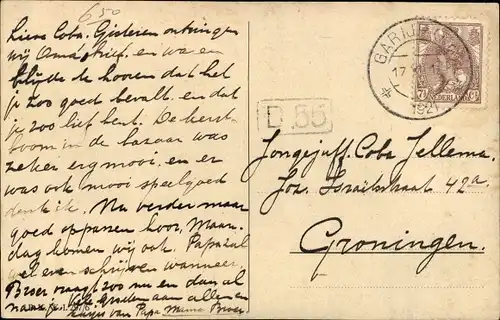 650
Lieve Coba. Gisteren ontvingen
wij Oma's brief. en wa en
blijde te hooren dat het
je zoo goed bevalt. en dat
je zoo lief bent. De kerst-
boom in de bazaar was
zeker erg mooi. en er
was ook mooi speelgoed
denk ik. Nu verder maar
goed oppassen hoor, Maan-
dag komen wij ook. Papa zal
wel even schrijven wanneer
Broer vraagt zoo nu en dan al
naar je. Vele groeten aan allen en
kusjes van Papa Mama Broer
GARIJP
17
1921
7½
NEDERLAND
D.55
Jongejuff. Coba Jellema
Joz. Israëlstraat 42a
Groningen.